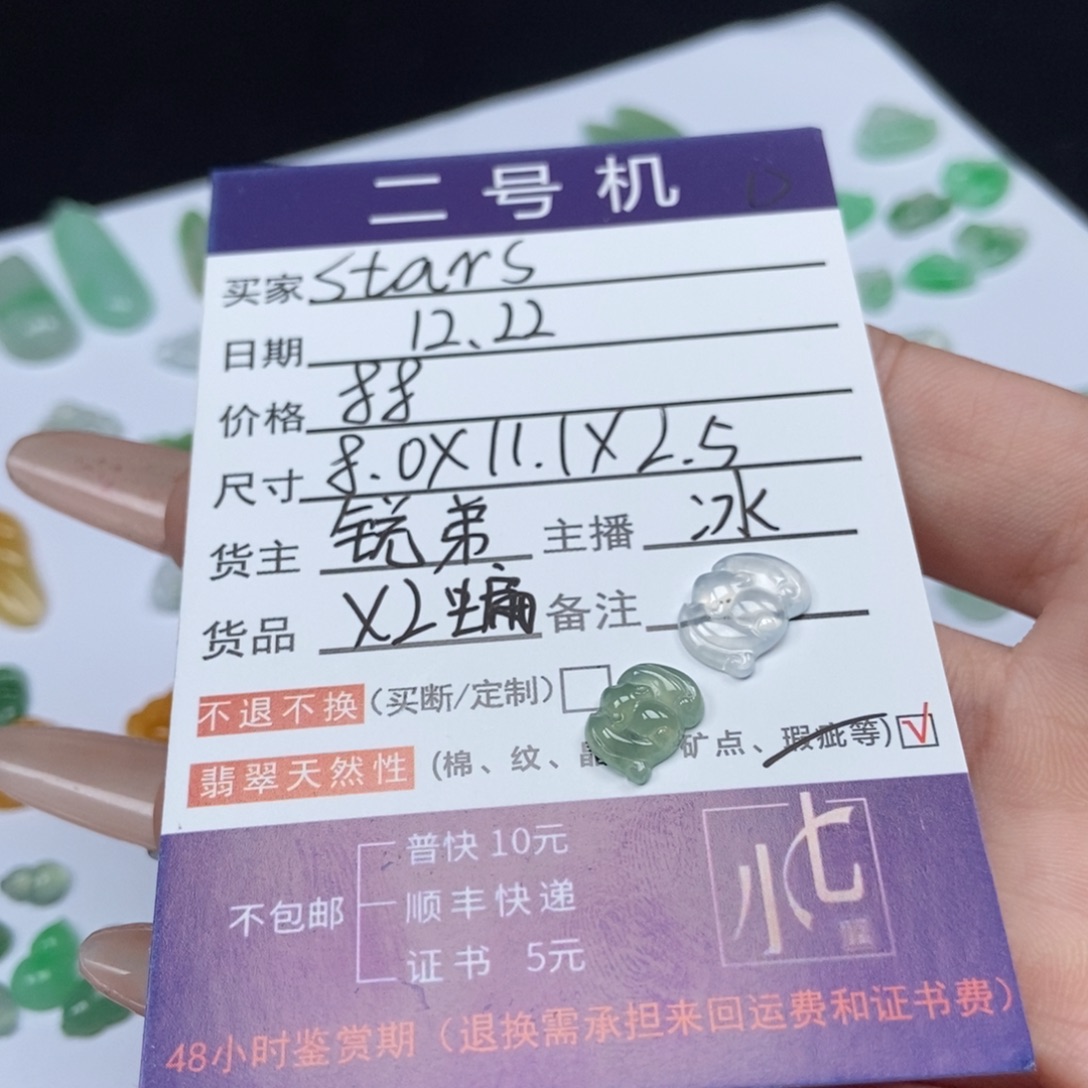 二号机
买家 stars
日期 12.22
价格 88
尺寸 8.0X11.1X2.5
货主 锐弟 主播 冰
货品 X2蝙 备注
不退不换(买断/定制)
翡翠天然性 (棉、纹、晶 矿点、瑕疵等) √
普快 10元
不包邮 顺丰快递
证书 5元
小七
48小时鉴赏期（退换需承担来回运费和证书费）